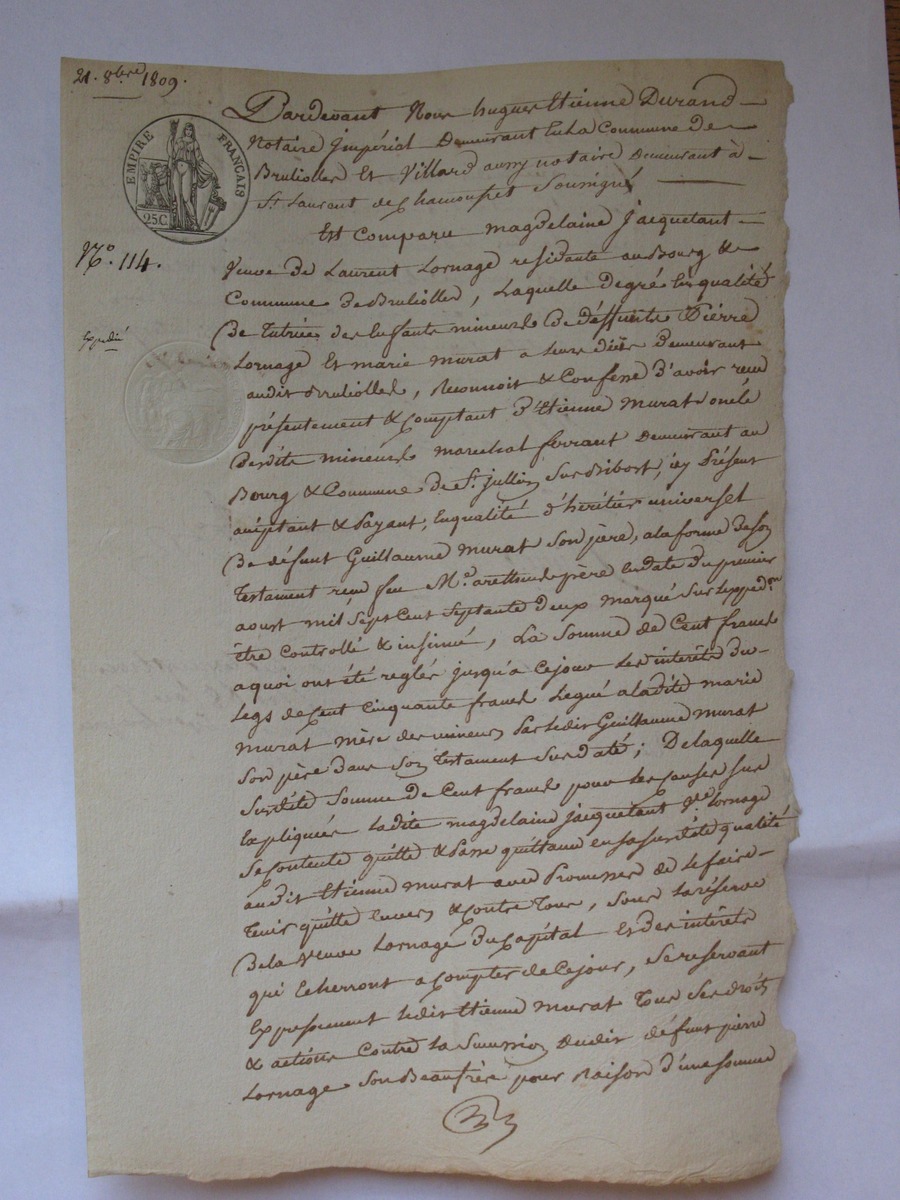 21. 8bre 1809.
EMPIRE FRANÇAIS
25C.
N.° 114.
Expédié
Pardevant Nous hugues Etienne Durand
Notaire impérial Demeurant En La Commune de
Brullioles Et Villard aussy notaire Demeurant à
St. Laurent de Chamousset Soussigné
Est Comparu magdelaine jacquetant
Veuve De Laurent Lornage residante au Bourg &
Commune De Brullioles, Laquelle De gré En qualité
De tutrice des Enfants mineurs De deffunts Pierre
Lornage Et marie murat a leurs décès Demeurant
audit Brullioles, Reconnoit & Confesse D'avoir reçu
présentement & Comptant D'Etienne murat oncle
Desdits mineurs marechal ferrant Demeurant au
Bourg & Commune De St. jullien Sur Bibost, icy Présent
acceptant & Payant, En qualité d'héritier universel
De défunt Guillaume murat Son père, a la forme de son
Testament reçu feu Me. père En date du premier
aoust mil Sept Cent Septante deux marqué Sur L'expedon
être Controllé & insinué, La Somme de Cent francs
a quoi ont été reglés jusqu'a Ce jour Les intérêts Du
Legs de Cent Cinquante francs Legué a ladite marie
murat mère des mineurs Par Ledit Guillaume murat
Son père Dans Son Testament Sus daté; De laquelle
Susdite Somme de Cent francs pour Les Causes Sus
Expliquées Ladite magdelaine jacquetant Ve. Lornage
Se Contente quitte & Passe quittance en sa susdite qualité
audit Etienne murat avec Promesses de le faire
Tenir quitte Envers & Contre Tous, Sous La réserve
De la Veuve Lornage Du Capital Et des intérêts
qui Echerront a Compter de Ce jour, Se reservant
Expressement Ledit Etienne murat Tous Ses droits
& actions Contre La Succession Dudit défunt pierre
Lornage Son Beaufrère pour Raison d'une somme